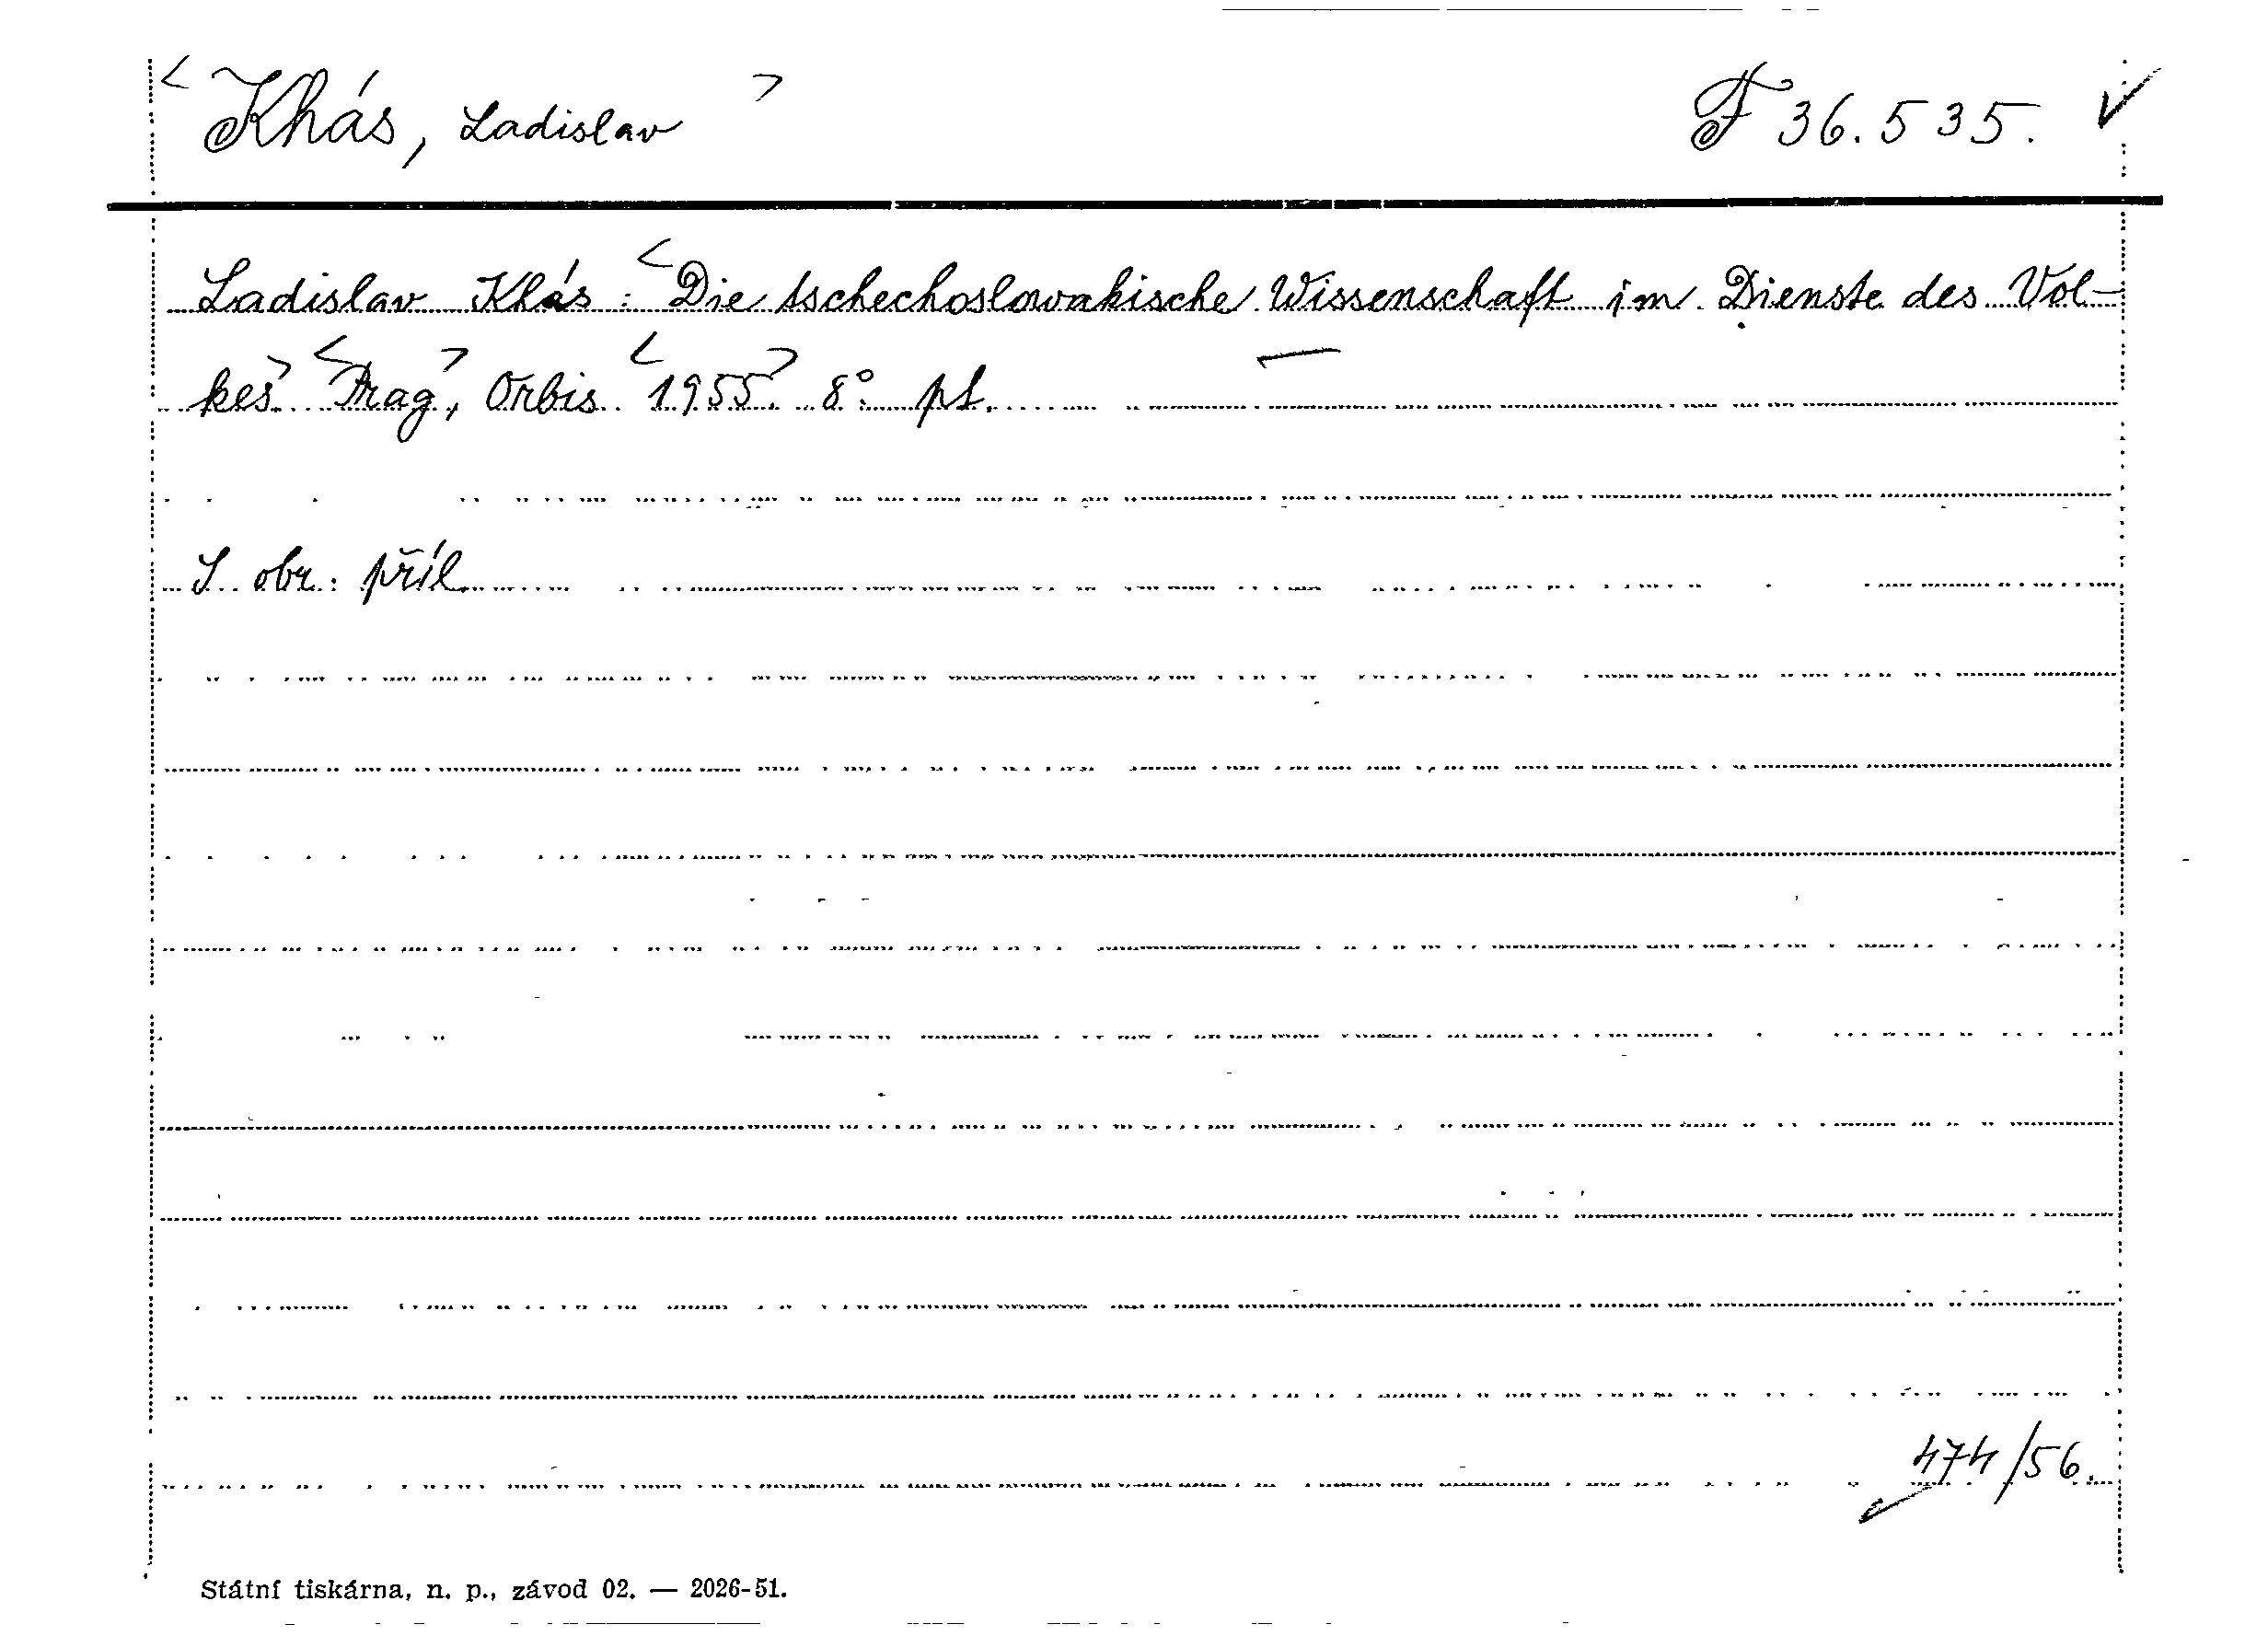 < Khás, Ladislav > F 36.535. ✓
Ladislav Khás: <Die tschechoslowakische Wissenschaft im Dienste des Vol-
kes> <Prag>, Orbis <1955>. 8° pt.
S obr. příl.
474/56.
Státní tiskárna, n. p., závod 02. — 2026-51.